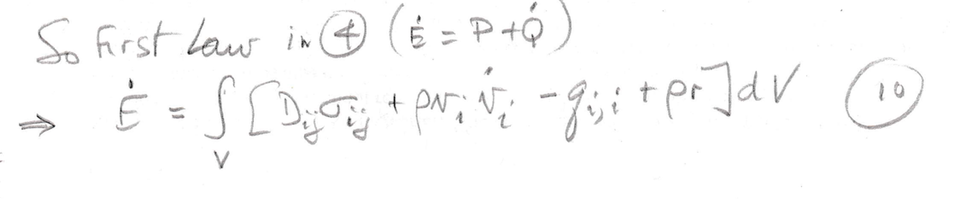 So first Law in ④ (Ė = P + Q̇)
⇒ Ė = ∫_V [D_ij σ_ij + ρv_i v̇_i - q_i,i + ρr] dV ⑩